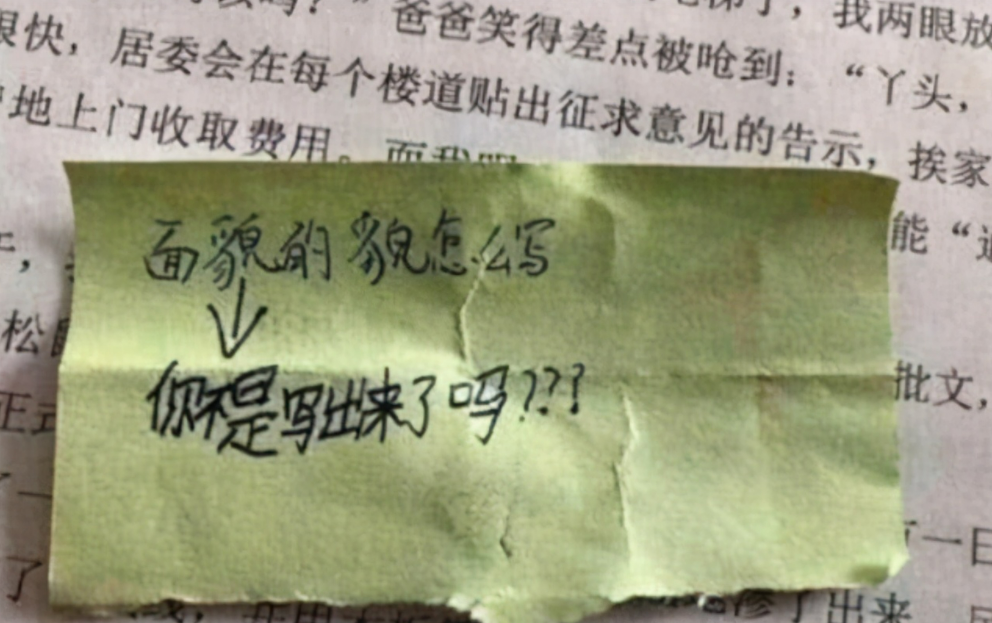 爸爸笑得差点被呛到：“丫头，我两眼放
很快，居委会在每个楼道贴出征求意见的告示，挨家
地上门收取费用。而我
能“
松
批文，
正式
一日
了
了出来
面貌的貌怎么写
↓
你不是写出来了吗???